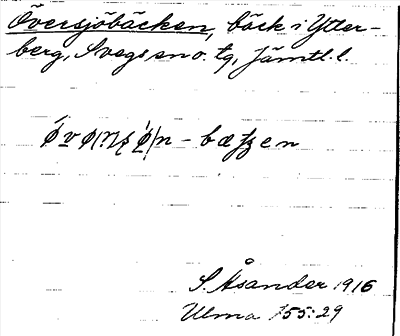 Översjöbäcken, bäck i Ytter-
berg, Svegs sn o. tg, Jämtl. l.
S. Åsander 1916
Ulma 155:29